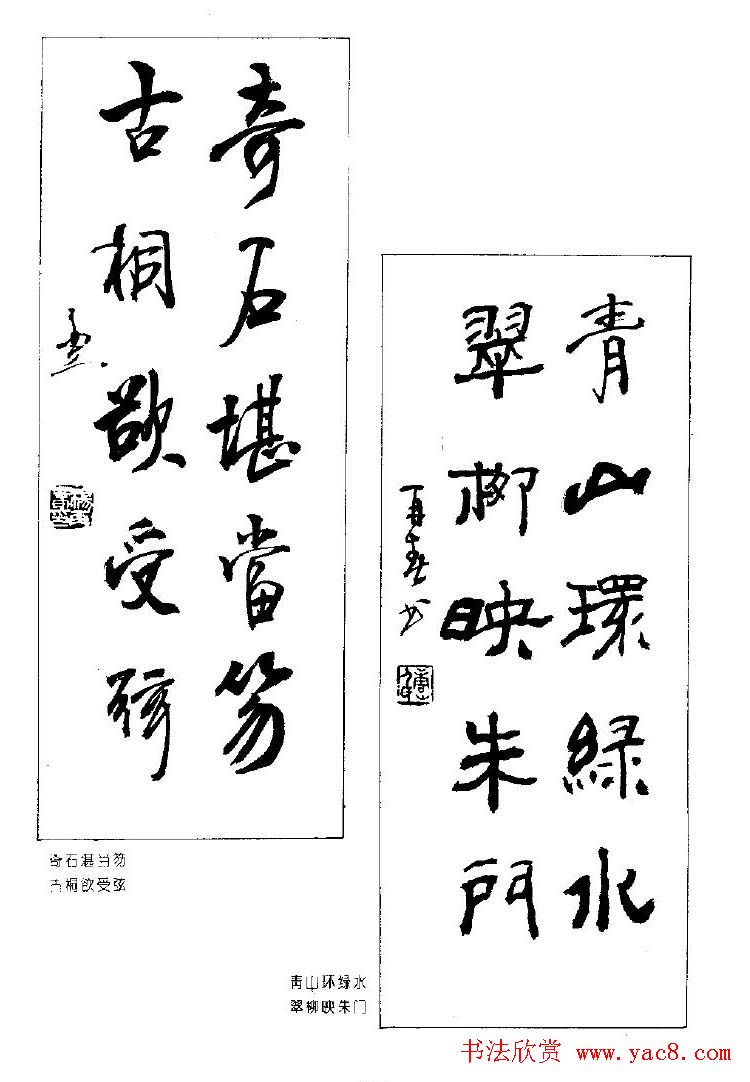 奇石堪當笏
古桐欲受弦
奇石堪当笏
古桐欲受弦
青山環綠水
翠柳映朱門
再春书
青山环绿水
翠柳映朱门
书法欣赏 www.yac8.com